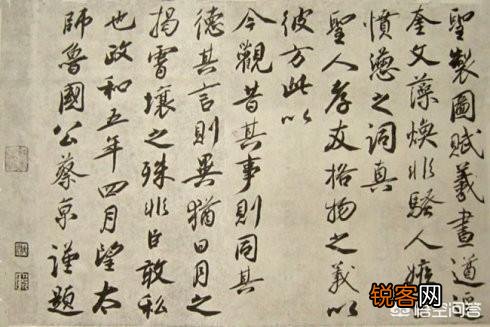 聖製圖賦羲畫
奎文藻煥非騷人
憤懣之詞真
聖人孝友格物之義以
彼方此以
今觀昔其事則同其
德其言則異猶日月之
揭霄壤之殊非臣敢私
也政和五年四月望太
師魯國公蔡京謹題
锐客网
悟空问答